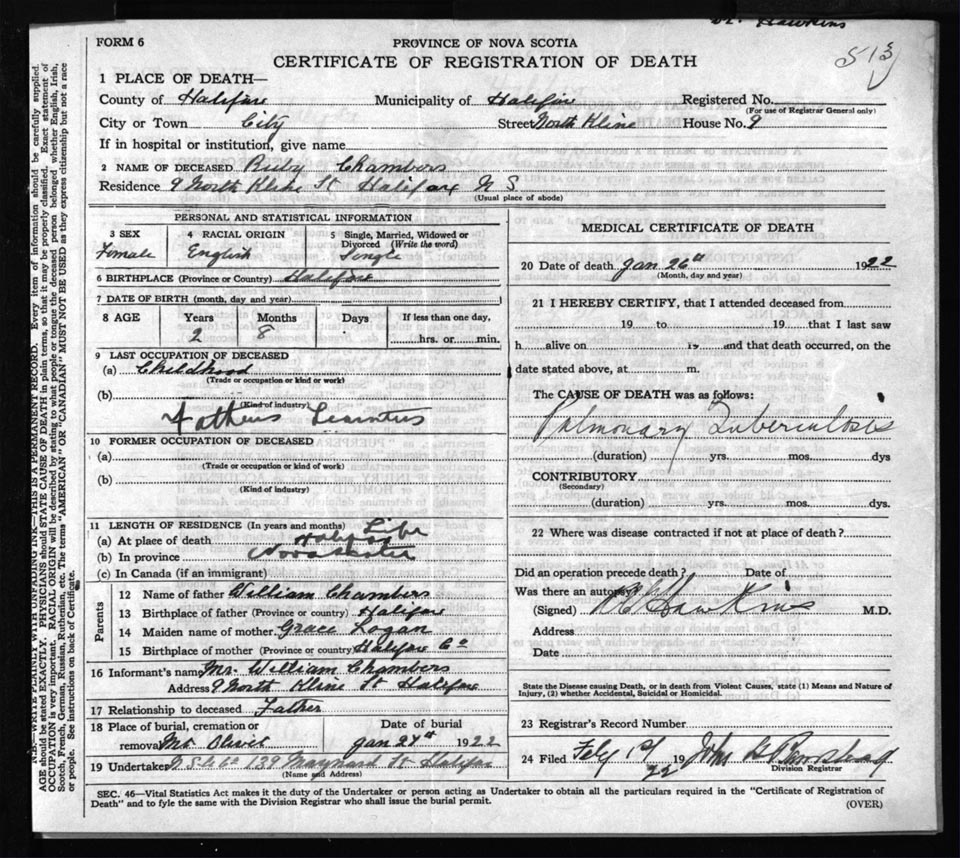 Dr. Hawkins
513
FORM 6
PROVINCE OF NOVA SCOTIA
CERTIFICATE OF REGISTRATION OF DEATH
1 PLACE OF DEATH—
County of Halifax Municipality of Halifax Registered No.
(For use of Registrar General only)
City or Town City Street North Kline House No. 9
If in hospital or institution, give name
2 NAME OF DECEASED Ruby Chambers
Residence 9 North Kline St Halifax N S.
(Usual place of abode)
PERSONAL AND STATISTICAL INFORMATION
3 SEX 4 RACIAL ORIGIN 5 Single, Married, Widowed or Divorced (Write the word)
Female English Single
6 BIRTHPLACE (Province or Country) Halifax
7 DATE OF BIRTH (month, day and year)
8 AGE Years Months Days If less than one day,
2 8 hrs. or min.
9 LAST OCCUPATION OF DECEASED
(a) Childhood
(Trade or occupation or kind or work)
(b)
(Kind of industry)
Fathers
10 FORMER OCCUPATION OF DECEASED
(a)
(Trade or occupation or kind of work)
(b)
(Kind of industry)
11 LENGTH OF RESIDENCE (In years and months) Life
(a) At place of death Halifax
(b) In province Nova Scotia
(c) In Canada (if an immigrant)
Parents
12 Name of father William Chambers
13 Birthplace of father (Province or country) Halifax
14 Maiden name of mother Grace Logan
15 Birthplace of mother (Province or country) Halifax Co
16 Informant's name Mr. William Chambers
Address 9 North Kline St Halifax
17 Relationship to deceased Father
18 Place of burial, cremation or removal Mt Olivet Date of burial Jan 27th 1922
19 Undertaker 139 Maynard St Halifax
(Name and Address)
MEDICAL CERTIFICATE OF DEATH
20 Date of death Jan 26th 1922
(Month, day and year)
21 I HEREBY CERTIFY, that I attended deceased from
19 to 19 that I last saw
h alive on 19 and that death occurred, on the
date stated above, at m.
The CAUSE OF DEATH was as follows:
Pulmonary Tuberculosis
(duration) yrs. mos. dys
CONTRIBUTORY
(Secondary)
(duration) yrs. mos. dys.
22 Where was disease contracted if not at place of death?
Did an operation precede death? Date of
Was there an autopsy?
(Signed) Hawkins M.D.
Address
Date
State the Disease causing Death, or in death from Violent Causes, state (1) Means and Nature of
Injury, (2) whether Accidental, Suicidal or Homicidal.
23 Registrar's Record Number
24 Filed Feby 1st 1922 John H
Division Registrar
SEC. 46—Vital Statistics Act makes it the duty of the Undertaker or person acting as Undertaker to obtain all the particulars required in the "Certificate of Registration of
Death" and to fyle the same with the Division Registrar who shall issue the burial permit.
(OVER)
N.B.—WRITE PLAINLY WITH UNFADING INK—THIS IS A PERMANENT RECORD. Every item of information should be carefully supplied.
AGE should be stated EXACTLY. PHYSICIANS should STATE CAUSE OF DEATH in plain terms, so that it may be properly classified. Exact statement of
OCCUPATION is very important. RACIAL ORIGIN will be described by stating to what people or tongue the deceased person belonged whether English, Irish,
Scotch, French, German, Russian, Ruthenian, etc. The terms "AMERICAN" OR "CANADIAN" MUST NOT BE USED as they express citizenship but not a race
or people. See instructions on back of Certificate.